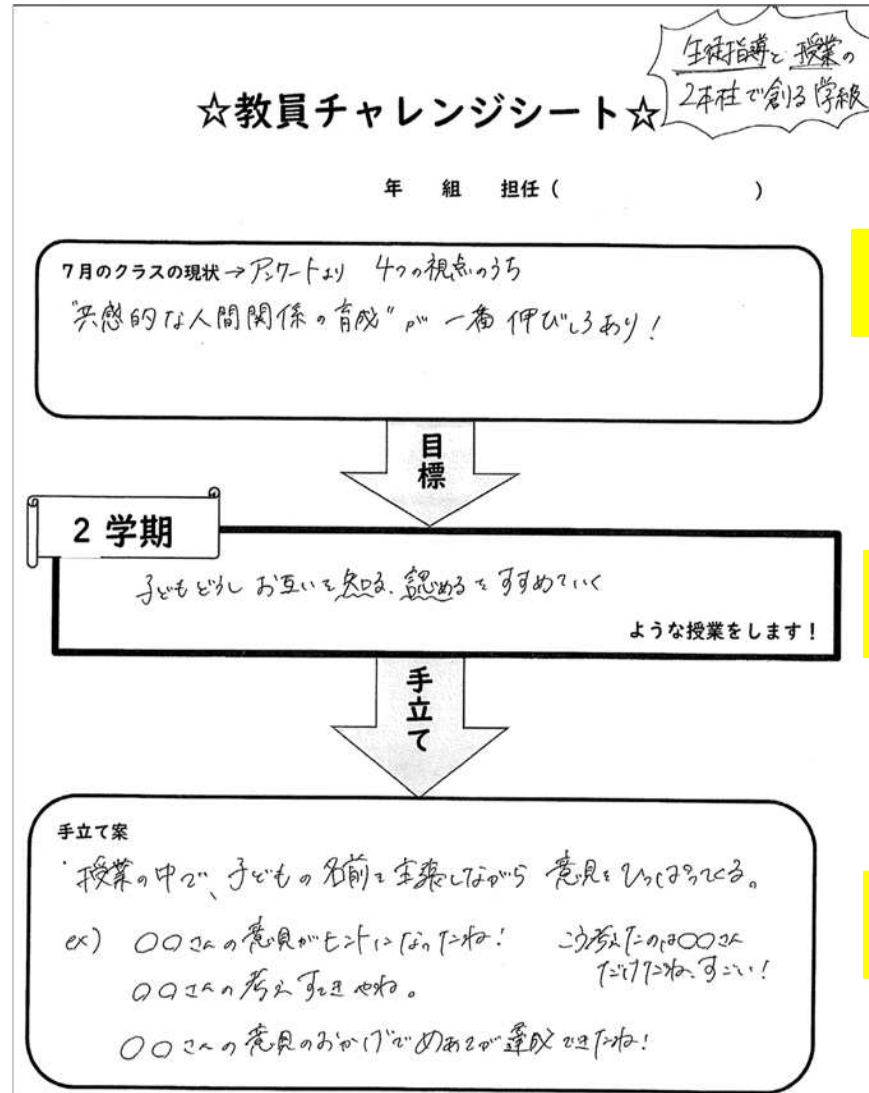 生徒指導と授業の
2本柱で創る学級
☆教員チャレンジシート☆
年 組 担任( )
7月のクラスの現状→アンケートより 4つの視点のうち
"共感的な人間関係の育成"が一番伸びしろあり!
目標
2 学期
子どもどうしお互いを知る、認めるをすすめていく
ような授業をします!
手立て
手立て案
・授業の中で、子どもの名前を主張しながら 意見をひっぱってくる。
ex) 〇〇さんの意見がヒントになったね! こう考えたのは〇〇さん
だけだね、すごい!
〇〇さんの考えすてきやね。
〇〇さんの意見のおかげでめあてが達成できたね!